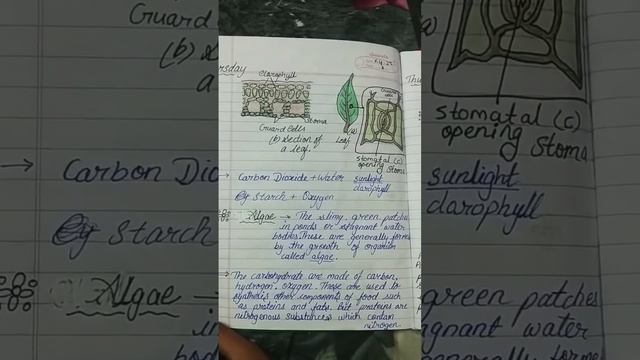 Clorophyll
Stoma
Guard Cells
(b) Section of
a leaf.
(a)
Leaf
Guard
cells
stomatal (c)
opening Stoma
Carbon Dioxide + Water sunlight
clarophyll
Starch + Oxygen
Algae → The slimy, green patches
in ponds or stagnant water
bodies. These are generally formed
by the growth of organism
called algae.
→ The carbohydrate are made of carbon,
hydrogen, oxygen. These are used to
synthesis other components of food such
as proteins and fats. but proteins are
nitrogenous substances which contain
nitrogen